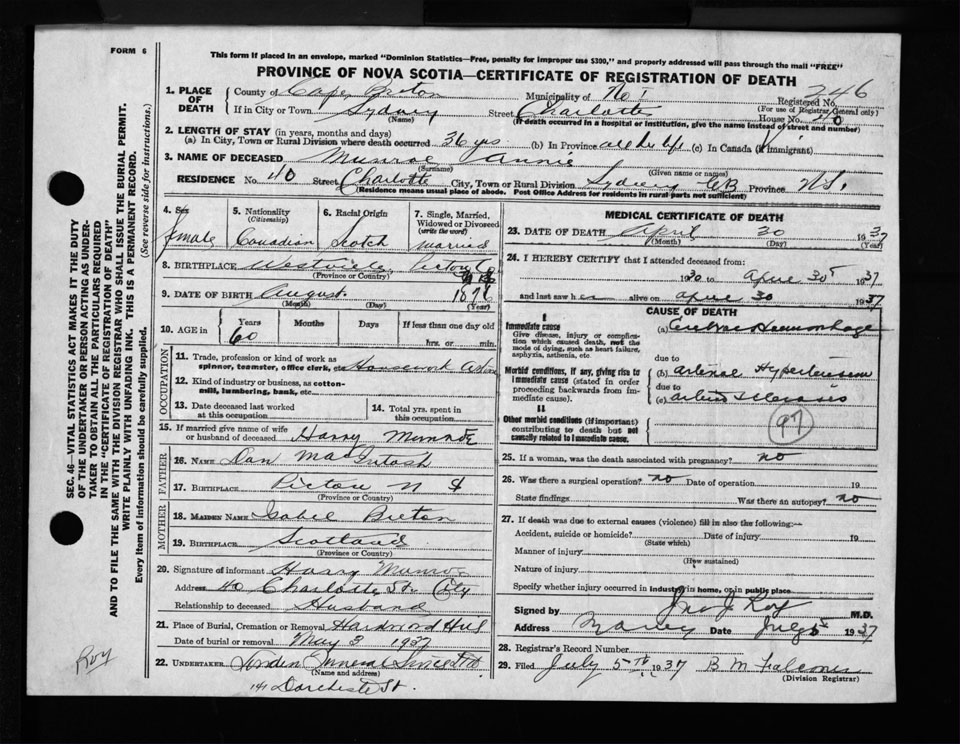 FORM 6
This form if placed in an envelope, marked "Dominion Statistics—Free, penalty for improper use $300," and properly addressed will pass through the mail "FREE"
PROVINCE OF NOVA SCOTIA—CERTIFICATE OF REGISTRATION OF DEATH
SEC. 46—VITAL STATISTICS ACT MAKES IT THE DUTY
OF THE UNDERTAKER OR PERSON ACTING AS UNDER-
TAKER TO OBTAIN ALL THE PARTICULARS REQUIRED
IN THE "CERTIFICATE OF REGISTRATION OF DEATH"
AND TO FILE THE SAME WITH THE DIVISION REGISTRAR WHO SHALL ISSUE THE BURIAL PERMIT.
WRITE PLAINLY WITH UNFADING INK. THIS IS A PERMANENT RECORD.
Every item of information should be carefully supplied.
(See reverse side for instructions.)
1. PLACE OF DEATH County of Cape Breton Municipality of No 1 Registered No. 246
(For use of Registrar General only)
If in City or Town Sydney Street Charlotte House No. 40
(Name) (If death occurred in a hospital or institution, give the name instead of street and number)
2. LENGTH OF STAY (in years, months and days)
(a) In City, Town or Rural Division where death occurred 36 yrs (b) In Province all her life (c) In Canada (if immigrant)
3. NAME OF DECEASED Munroe Annie
(Surname) (Given name or names)
RESIDENCE No. 40 Street Charlotte City, Town or Rural Division Sydney CB Province N.S.
(Residence means usual place of abode. Post Office Address for residents in rural parts not sufficient)
4. Sex female
5. Nationality (Citizenship) Canadian
6. Racial Origin Scotch
7. Single, Married, Widowed or Divorced (write the word) Married
8. BIRTHPLACE Westville Pictou Co
(Province or Country)
9. DATE OF BIRTH August 1876
(Month) (Day) (Year)
10. AGE in Years 60 Months Days If less than one day old
hrs. or min.
OCCUPATION
11. Trade, profession or kind of work as
spinner, teamster, office clerk, etc. Housework
12. Kind of industry or business, as cotton-
mill, lumbering, bank, etc.
13. Date deceased last worked
at this occupation
14. Total yrs. spent in
this occupation
15. If married give name of wife
or husband of deceased Harry Munroe
FATHER
16. NAME Dan MacIntosh
17. BIRTHPLACE Pictou N S
(Province or Country)
MOTHER
18. MAIDEN NAME Isabel
19. BIRTHPLACE Scotland
(Province or Country)
20. Signature of informant Harry Munroe
Address 40 Charlotte St. City
Relationship to deceased Husband
21. Place of Burial, Cremation or Removal Hardwood Hill
Date of burial or removal May 3 1937
22. UNDERTAKER Funeral Service Ltd.
(Name and address)
141 Dorchester St.
Roy
MEDICAL CERTIFICATE OF DEATH
23. DATE OF DEATH April 30 1937
(Month) (Day) (Year)
24. I HEREBY CERTIFY that I attended deceased from:
1930 to April 30 1937
and last saw her alive on April 30 1937
CAUSE OF DEATH
I
Immediate cause
Give disease, injury or complica-
tion which caused death, not the
mode of dying, such as heart failure,
asphyxia, asthenia, etc.
(a) Cerebral Haemorrhage
due to
Morbid conditions, if any, giving rise to
immediate cause (stated in order
proceeding backwards from im-
mediate cause).
(b) Arterial Hypertension
due to
(c) Arterio Sclerosis
II
Other morbid conditions (if important)
contributing to death but not
causally related to immediate cause.
97
25. If a woman, was the death associated with pregnancy? no
26. Was there a surgical operation? no Date of operation 19
State findings Was there an autopsy? no
27. If death was due to external causes (violence) fill in also the following:—
Accident, suicide or homicide? Date of injury 19
(State which)
Manner of injury
(How sustained)
Nature of injury
Specify whether injury occurred in industry, in home, or in public place
Signed by Jno J. Roy M.D.
Address Date July 5 1937
28. Registrar's Record Number
29. Filed July 5th 1937 B M Falconer
(Division Registrar)